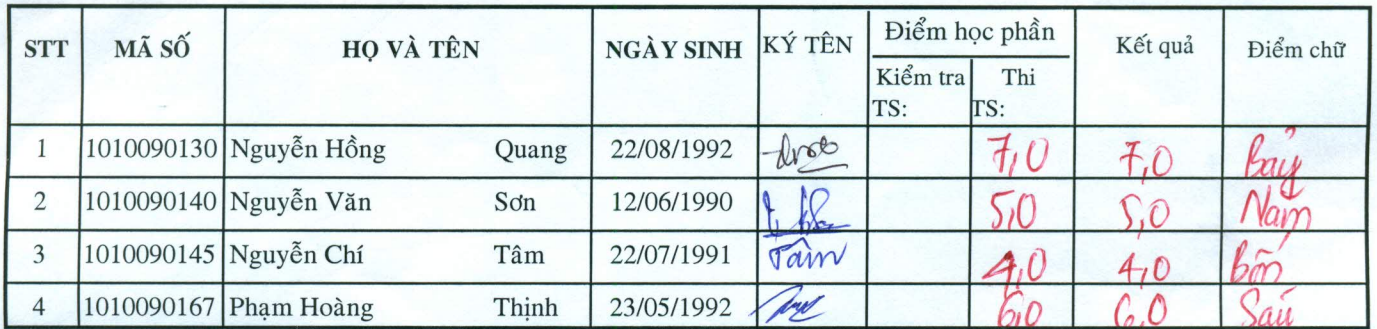 STT MÃ SỐ HỌ VÀ TÊN NGÀY SINH KÝ TÊN Điểm học phần Kết quả Điểm chữ
Kiểm tra Thi
TS: TS:
1 1010090130 Nguyễn Hồng Quang 22/08/1992 7,0 7,0 Bảy
2 1010090140 Nguyễn Văn Sơn 12/06/1990 5,0 5,0 Năm
3 1010090145 Nguyễn Chí Tâm 22/07/1991 Tâm 4,0 4,0 bốn
4 1010090167 Phạm Hoàng Thịnh 23/05/1992 6,0 6,0 Sáu